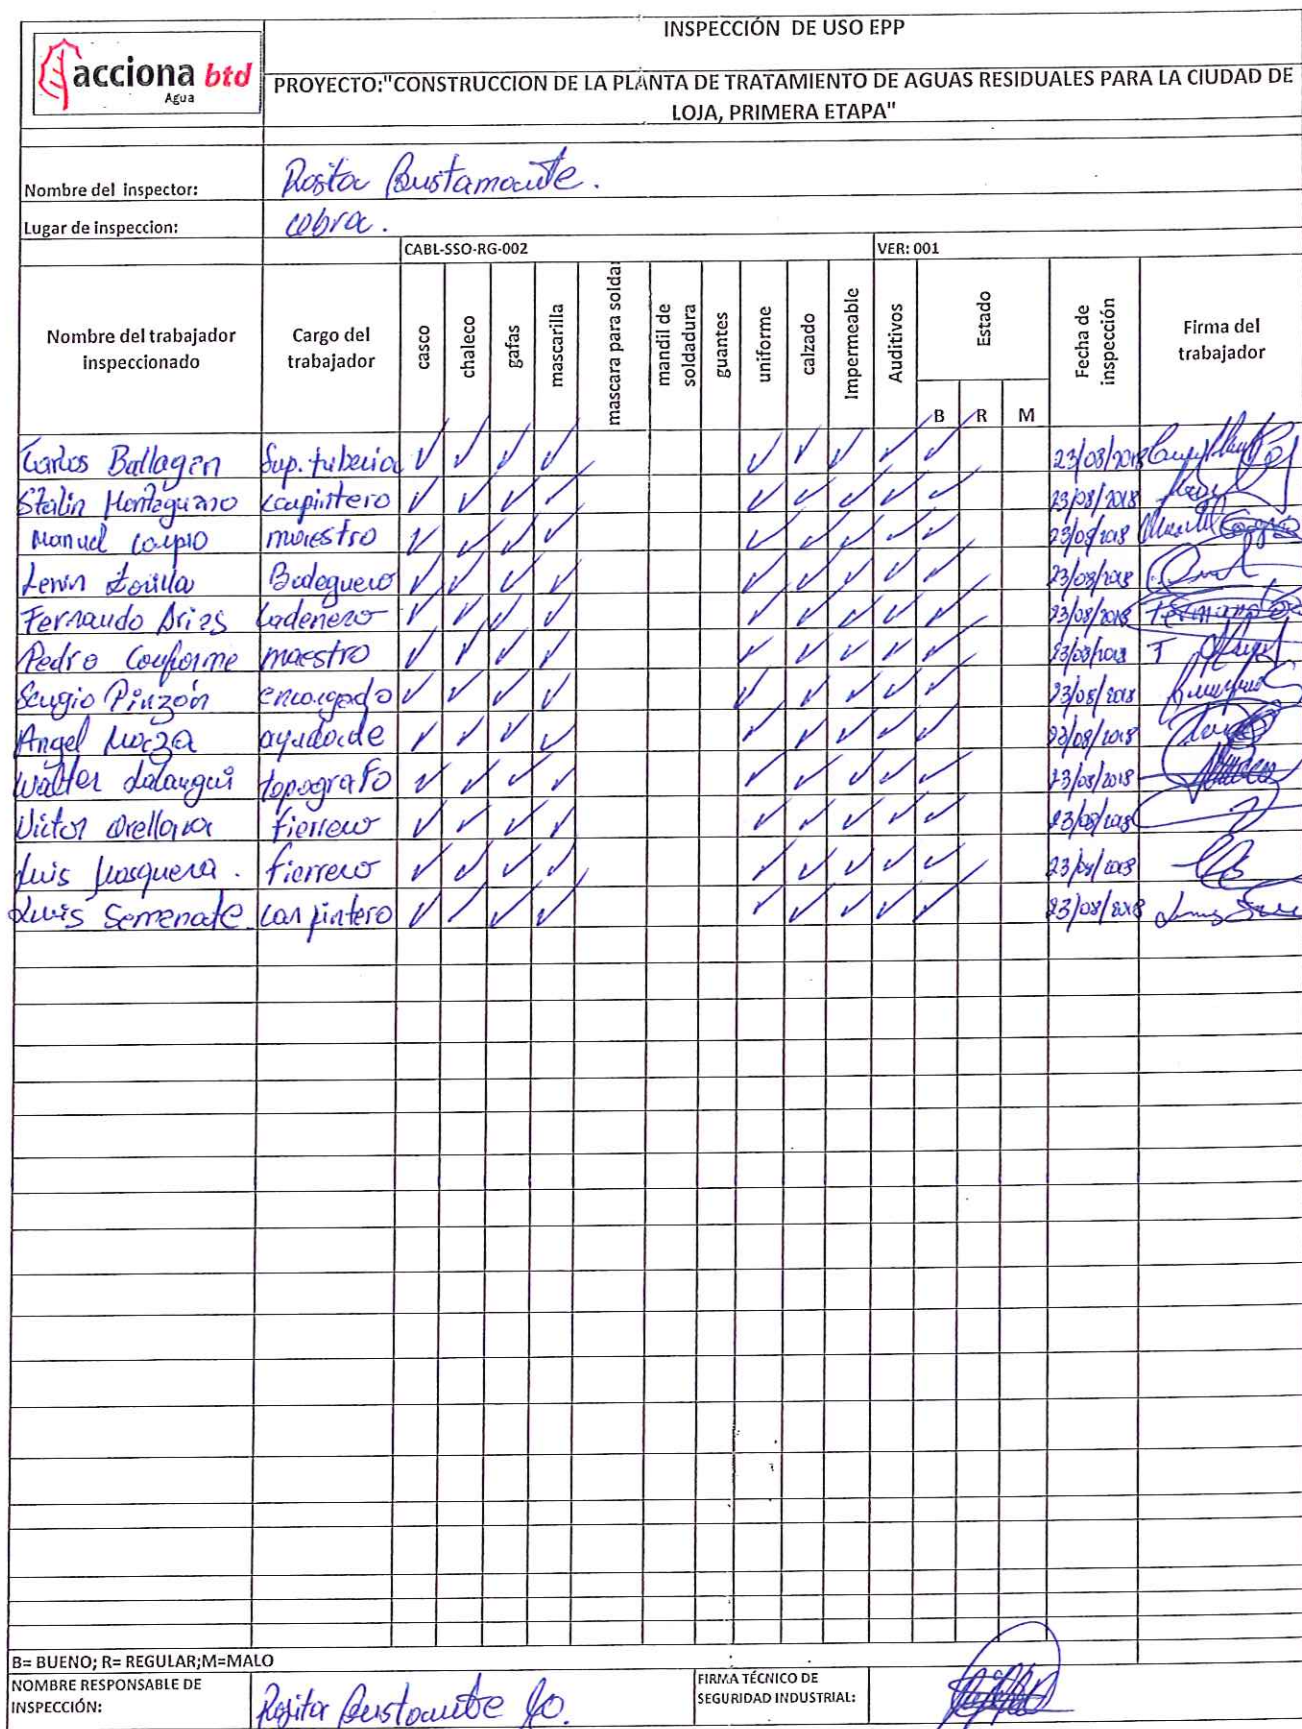 INSPECCIÓN DE USO EPP
acciona btd
Agua
PROYECTO:"CONSTRUCCION DE LA PLANTA DE TRATAMIENTO DE AGUAS RESIDUALES PARA LA CIUDAD DE
LOJA, PRIMERA ETAPA"
Nombre del inspector: Rosita Bustamante.
Lugar de inspeccion:
CABL-SSO-RG-002 VER: 001
Nombre del trabajador inspeccionado Cargo del trabajador casco chaleco gafas mascarilla mascara para soldar mandil de soldadura guantes uniforme calzado Impermeable Auditivos Estado Fecha de inspección Firma del trabajador
B R M
Carlos Sup. tuberia ✓ ✓ ✓ ✓ ✓ ✓ ✓ ✓ ✓ 23/08/2018
Stalin ✓ ✓ ✓ ✓ ✓ ✓ ✓ ✓ ✓ 23/08/2018
Manuel Carpio maestro ✓ ✓ ✓ ✓ ✓ ✓ ✓ ✓ ✓ 23/08/2018
Lenin Bodeguero ✓ ✓ ✓ ✓ ✓ ✓ ✓ ✓ ✓ 23/08/2018
Fernando Arias cadenero ✓ ✓ ✓ ✓ ✓ ✓ ✓ ✓ ✓ 23/08/2018
Pedro Conforme maestro ✓ ✓ ✓ ✓ ✓ ✓ ✓ ✓ ✓ 23/08/2018
Sergio Pinzón encargado ✓ ✓ ✓ ✓ ✓ ✓ ✓ ✓ ✓ 23/08/2018
Angel ayudante ✓ ✓ ✓ ✓ ✓ ✓ ✓ ✓ ✓ 23/08/2018
Walter topografo ✓ ✓ ✓ ✓ ✓ ✓ ✓ ✓ ✓ 23/08/2018
Victor Orellana fierrero ✓ ✓ ✓ ✓ ✓ ✓ ✓ ✓ ✓ 23/08/2018
Luis . fierrero ✓ ✓ ✓ ✓ ✓ ✓ ✓ ✓ ✓ 23/08/2018
Luis Semenate. carpintero ✓ ✓ ✓ ✓ ✓ ✓ ✓ ✓ ✓ 23/08/2018
B= BUENO; R= REGULAR;M=MALO
NOMBRE RESPONSABLE DE INSPECCIÓN: Rosita FIRMA TÉCNICO DE SEGURIDAD INDUSTRIAL: